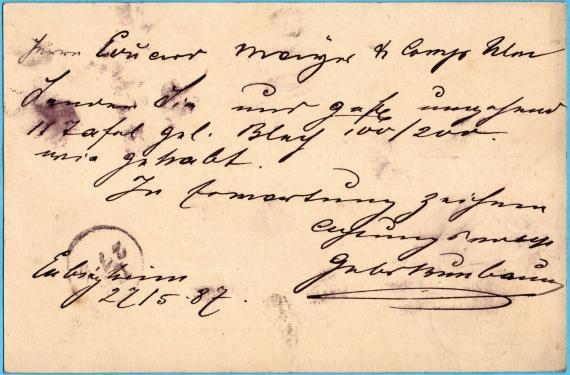 Herrn Eduard Maijer & Comp Ulm
Senden Sie uns gefl. umgehend
11 Tafel gel. Blech 100/200.
wie gehabt.
In Erwartung zeichnen
Achtungsvoll
Gebr Nußbaum
27/5 87.